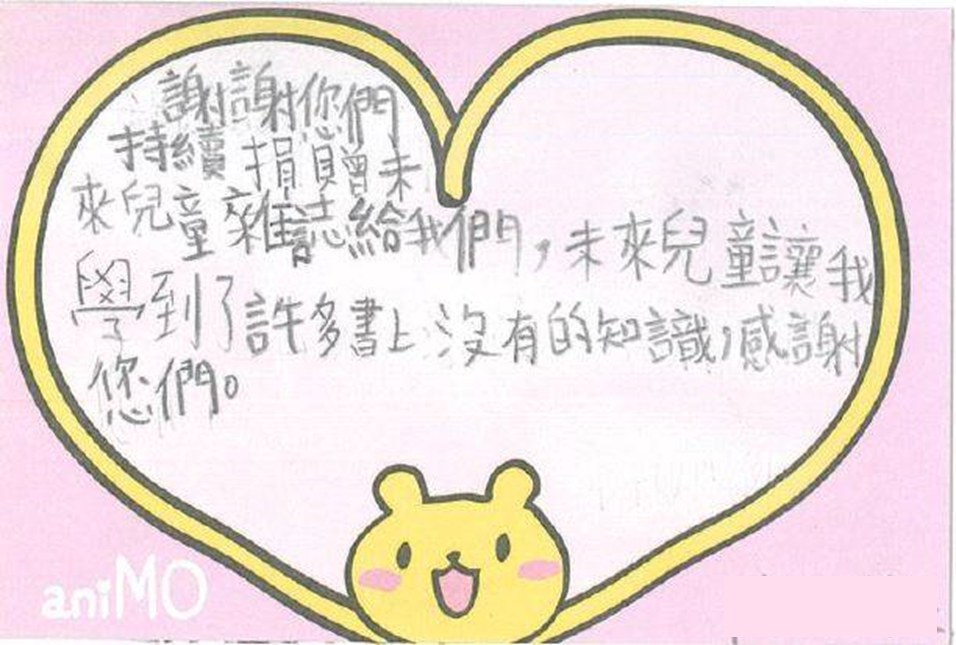 謝謝您們
持續捐贈未
來兒童雜誌給我們,未來兒童讓我
學到了許多書上沒有的知識,感謝
您們。
aniMO